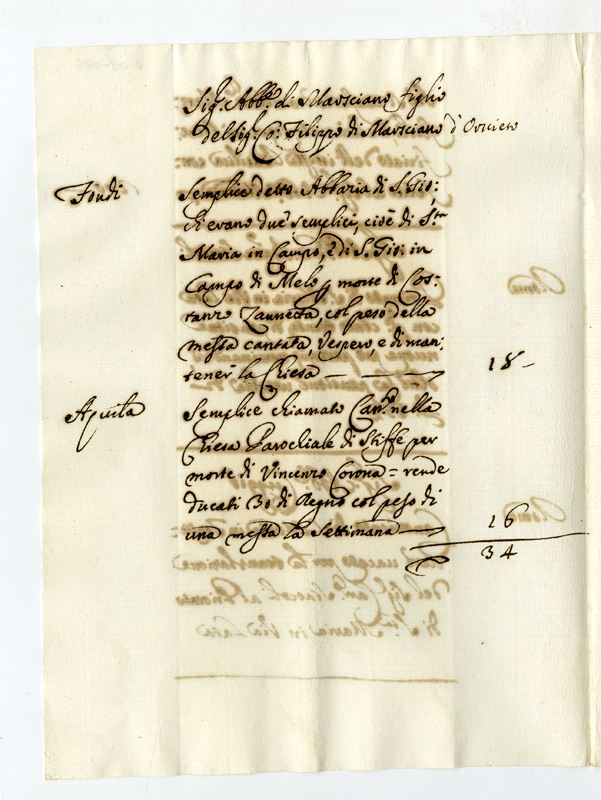 Sig.r Abb.e di Marsciano figlio
del Sig.r Co: Filippo di Marsciano d'Orvieto
Fondi
Semplice detto Abbazia di S. Gio:
ch'erano due semplici, cioè di S.ta
Maria in Campo, e di S. Gio: in
Campo di Melo p morte di Cos:
tanzo Zannetta, col peso della
messa cantata, Vespero, e di man:
tener la Chiesa — 18 -
Aquila
Semplice chiamato nella
Chiesa Parochiale di Stiffe per
morte di Vincenzo Corona = rende
ducati 30 di Regno col peso di
una messa la Settimana — 16
34